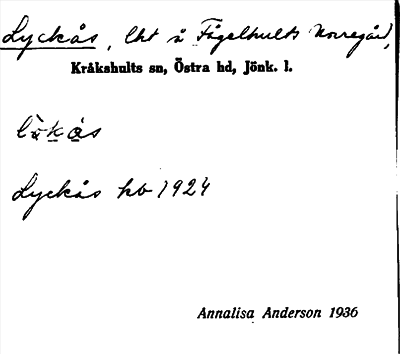 Lyckås, lht å Fågelhults Norregård,
Kråkshults sn, Östra hd, Jönk. l.
Lyckås kb 1924
Annalisa Anderson 1936